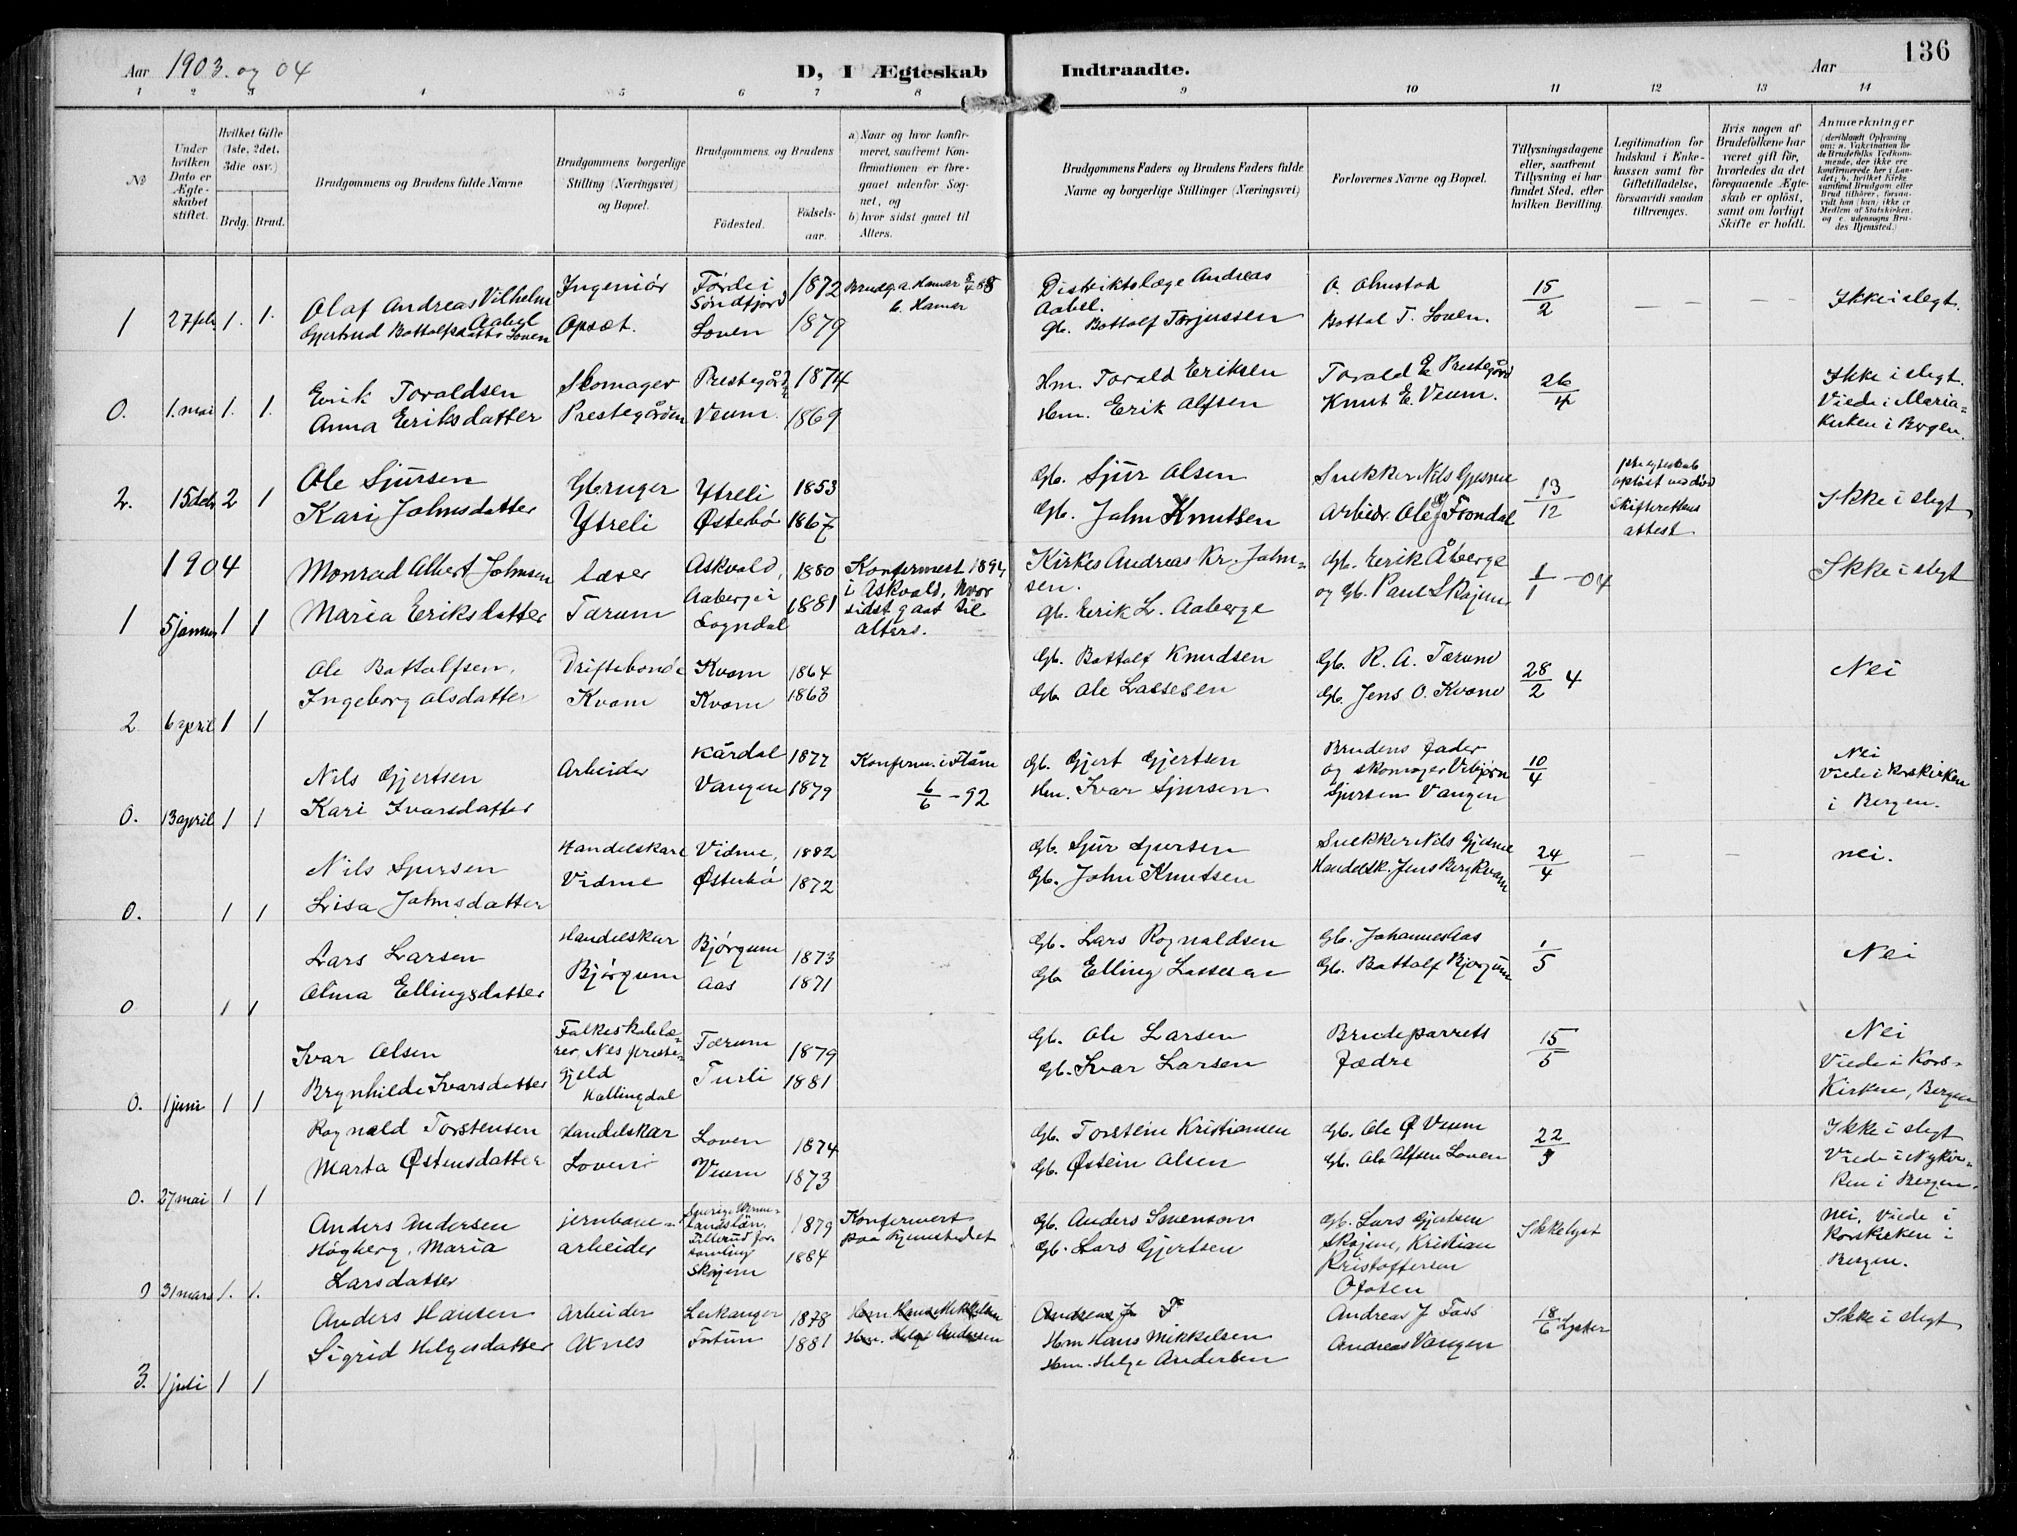 Aar 1903. og 04
D, I Ægteskab Indtraadte.
Aar
136
1 2 3 4 5 6 7 8 9 10 11 12 13 14
№
Under hvilken Dato er Ægteskabet stiftet.
Hvilket Gifte (1ste, 2det. 3die osv.)
Brdg. Brud.
Brudgommens og Brudens fulde Navne
Brudgommens borgerlige Stilling (Næringsvei) og Bopæl.
Brudgommens og Brudens
Fødested.
Fødselsaar.
a) Naar og hvor konfirmeret, saafremt Konfirmationen er foregaaet udenfor Sognet, og
b) hvor sidst gaaet til Alters.
Brudgommens Faders og Brudens Faders fulde Navne og borgerlige Stillinger (Næringsvei)
Forlovernes Navne og Bopæl.
Tillysningsdagene eller, saafremt Tillysning ei har fundet Sted, efter hvilken Bevilling.
Legitimation for Indskud i Enkekassen samt for Giftetilladelse, forsaavidt saadan tiltrænges.
Hvis nogen af Brudefolkene har været gift før, hvorledes da det foregaaende Ægteskab er opløst, samt om lovligt Skifte er holdt.
Anmærkninger
(deriblandt Oplysning om: a. Vakcination for de Brudefolks Vedkommende, der ikke ere konfirmerede her i Landet; b. hvilket Kirkesamfund Brudgom eller Brud tilhører, forsaavidt han (hun) ikke er Medlem af Statskirken, og c. udensogns Brudes Hjemsted.)
1 27 feb 1. 1. Olaf Andreas Vilhelm Aabel Ingeniör Førde i Söndfjord 1872 Brudg. a. Hamar 8/4 88 Distriktslæge Andreas Aabel. O. Olmstad 15/2 — — — Ikke i slegt.
Gjertrud Bottolfsdatter Loven Opsæt. Loven 1879 b. Hamar Gb. Bottolf Torjussen Bottol T. Loven.
0. 1. mai 1. 1. Erik Toraldsen Skomager Prestegård 1874 Hm. Torald Eriksen Torald E Prestegård 26/4 Ikke i slegt.
Anna Eriksdatter Prestegården Veum. 1869 Hm. Erik Alfsen Knut E. Veum. Viede i Mariakirken i Bergen.
2. 15 deb 2 1 Ole Sjursen Gbruger Ytreli 1853 Gb. Sjur Olsen Snekker Nils Gjesme 13/12 1ste egteskab opløst ved död Ikke i slegt
Kari Johnsdatter Ytreli Østebö 1867 Gb. John Knutsen Arbeidr. Ole Frondal Skifterettens attest
1904
1 5 januar 1 1 Monrad Albert Johnsen lærer Askvold, 1880 Konfermert 1894 i Askvold, hvor sidst gaat til alters. Kirkes Andreas Kr. Johnsen. Gb. Erik Åberge 1/1 -04 Ikke i slegt
Maria Eriksdatter Tørum Aaberge i Sogndal 1881 Gb. Erik L. Aaberge og Gb. Paul Skajem
2 6 april 1 1 Ole Bottolfsen, Driftebonde Kvam 1864 Gb. Bottolf Knudsen Gb. R. A. Tærum 28/2 4 Nei
Ingeborg Olsdatter Kvam Kvam 1863 Gb. Ole Lassesen Gb. Jens O. Kvam
0. 13 april 1 1 Nils Gjertsen Arbeider Kårdal 1877 Konferm. i Flåm Gb. Gjert Gjertsen Brudens fader 10/4 Nei
Kari Ivarsdatter Vangen 1879 6/6 -92 Hm. Ivar Sjursen og skomager Vebjørn Sjursen Vangen Viede i Korskirken i Bergen.
0. 1 1 Nils Sjursen Handelskarl Vidme, 1882 Gb. Sjur Sjursen Snekker Nils Gjesme 24/4 — — nei.
Lisa Johnsdatter Vidme Østebö 1872 Gb. John Knutsen Handelsk. Jens Berg Kvam
0 1 1 Lars Larsen Handelskar Bjørgum 1873 Gb. Lars Rognaldsen Gb. Johannes Aas 1/5 Nei
Alma Ellingsdatter Bjørgum Aas 1871 Gb. Elling Lassesen Gb. Bottolf Bjorgum
0. 1 juni 1 1 Ivar Olsen Folkeskolelærer, Nes prestegjeld Hallingdal Tørum 1879 Gb. Ole Larsen Brudeparrets 15/5 Nei
Brynhilde Ivarsdatter Turli 1881 Gb. Ivar Larsen fædre Viede i Korskirken, Bergen
0. 27 mai 1 1 Rognald Torstensen Handelskar Loven 1874 Gb. Torstein Kristiansen Gb. Ole Ø Veum 22/5 Ikke i slegt
Marta Østensdatter Loven Veum 1873 Gb. Østein Olsen Gb. Ole Alfsen Loven Viede i Nykirken i Bergen.
0 31 mars 1. 1. Anders Andersen Högberg, Maria Larsdatter jernbanearbeider 1879 Konfermert paa Hjemstedet Gb. Anders Svensson Gb. Lars Gjertsen Ikke lyst nei, Viede i
Skajem 1884 Gb. Lars Gjertsen Skajem, Kristian Kristoffersen Ofoten Korskirken i Bergen.
3. 1 juli 1 1 Anders Hansen Arbeider Leikanger 1878 Hm Hans Mikkelsen Andreas J F Andreas J Foss 18/6 Lyster Ikke i slegt
Sigrid Helgesdatter Aknes Fortun 1881 Hm. Helge Andersen Hm Hans Mikkelsen Andreas Vangen
Hm. Helge Andersen